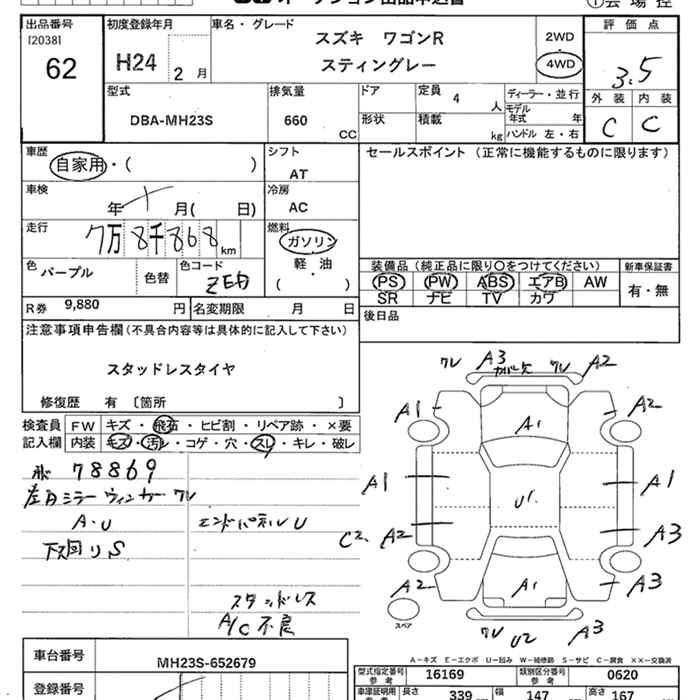 オークション出品申込書
①会場控
出品番号
120381
62
初度登録年月
H24 2 月
車名・グレード
スズキ ワゴンR
スティングレー
2WD
4WD
評価点
3.5
外装 内装
C C
型式
DBA-MH23S
排気量
660 CC
ドア
形状
定員 4 人
積載 kg
ディーラー・並行
モデル年式 年
ハンドル 左・右
車歴
自家用・( )
シフト
AT
セールスポイント(正常に機能するものに限ります)
車検
年 月( 日)
冷房
AC
走行
7万8千868 km
燃料
ガソリン
軽・油
( )
色
パープル
色替
色コード
ZED
装備品(純正品に限り〇をつけてください)
新車保証書
PS PW ABS エアB AW
SR ナビ TV カワ
有・無
R券 9,880 円
名変期限 月 日
後日品
注意事項申告欄(不具合内容等は具体的に記入して下さい)
スタッドレスタイヤ
修復歴 有〔箇所 〕
検査員記入欄
FW キズ・飛石・ヒビ割・リペア跡・×要
内装 キズ・汚レ・コゲ・穴・スレ・キレ・破レ
78869
左目ミラーウィンカーワレ
A・U
エンドパネルU
下回りS
スタッドレス
A/C不良
ワレ A3 ワレ A2
A1 A1 A2
A1 U1 A1
C2 A2 A3
A2 A1 A3
スペア
ワレ U2 A3
A-キズ E-エクボ U-凹み W-補修跡 S-サビ C-腐食 ××-交換済
車台番号
MH23S-652679
登録番号
型式指定番号 参考 16169
類別区分番号 参考 0620
車庫証明用 参考
長さ 339
幅 147
高さ 167